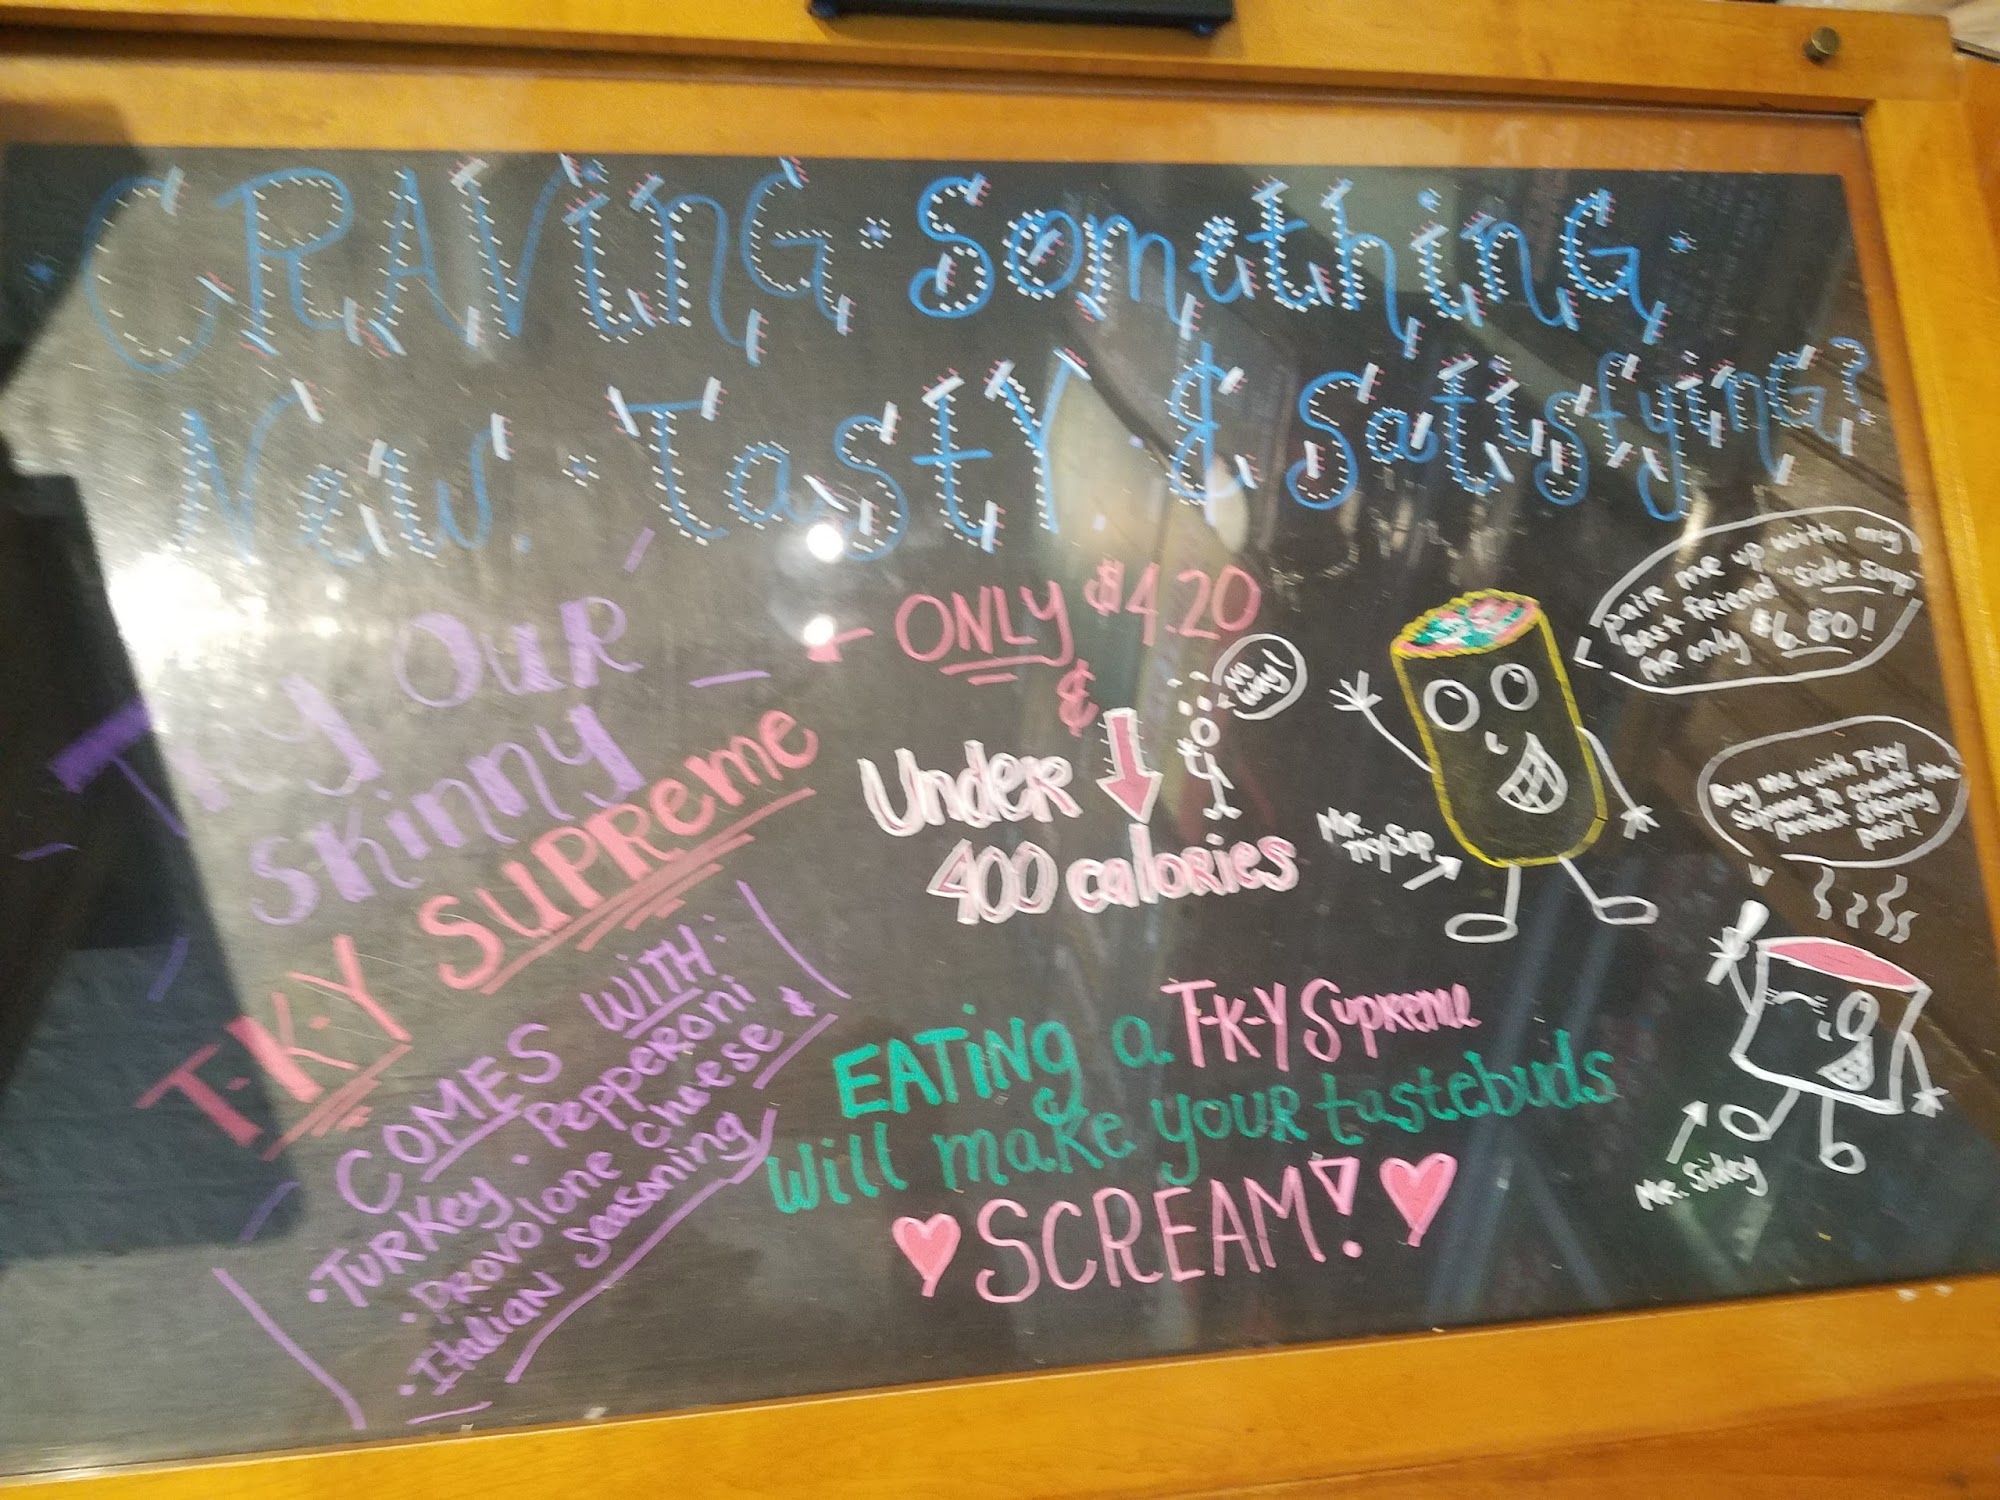 CRAViNG · SomethinG ·
New · TastY · & SatisfyinG?
Try OuR
Skinny
T-K-Y SUPReme
COMES WITH:
· TURKey · Pepperoni
· Provolone Cheese &
· Italian Seasoning
- ONLY $4.20
&
UndeR
400 calories
No
way!
EATiNg a T-K-Y Supreme
Will make your tastebuds
SCREAM!
pair me up with my
best friend "side sup"
for only $6.80!
MR.
Buy me with T-Ky
Supreme to create the
perfect skinny
pair!
MR. Sidey